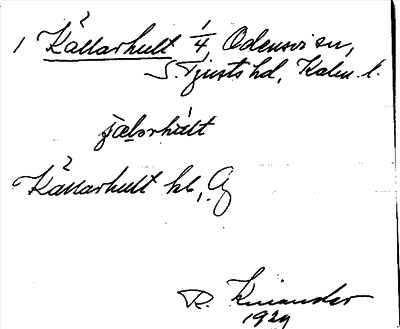 1 Källarhult 1/4, Odensvi sn,
S. Tjusts hd, Kalm. l.
Källarhult hl,
R. Kinander
1929